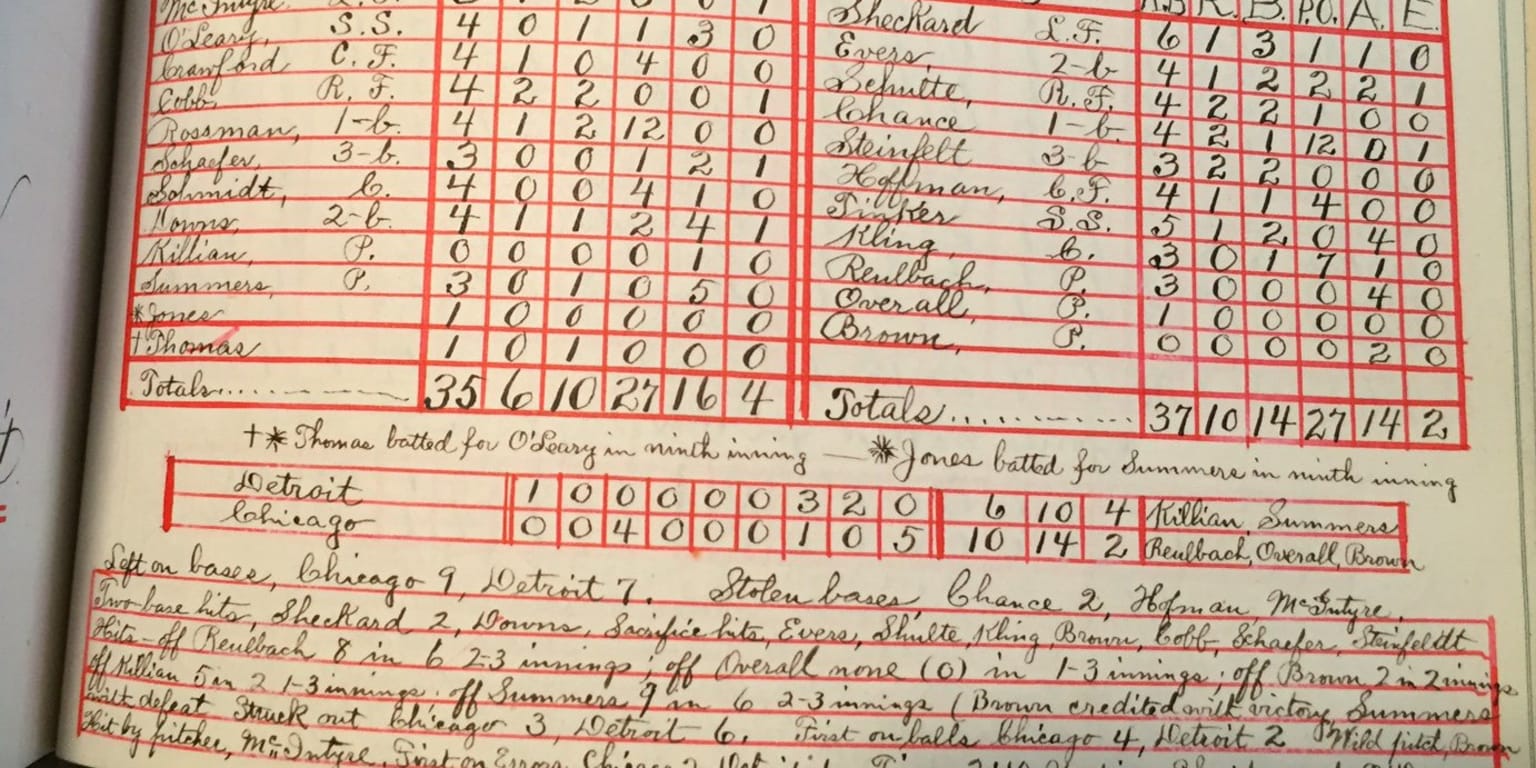 McIntyre
O'Leary, S.S. 4 0 1 1 3 0
Crawford C.F. 4 1 0 4 0 0
Cobb, R.F. 4 2 2 0 0 1
Rossman, 1-b. 4 1 2 12 0 0
Schaefer, 3-b. 3 0 0 1 2 1
Schmidt, C. 4 0 0 4 1 0
Downs, 2-b. 4 1 1 2 4 1
Killian, P. 0 0 0 0 1 0
Summers, P. 3 0 1 0 5 0
*Jones 1 0 0 0 0 0
†Thomas 1 0 1 0 0 0
Totals........ 35 6 10 27 16 4
A.B R. B. P.O. A. E.
Sheckard L.F. 6 1 3 1 1 0
Evers, 2-b 4 1 2 2 2 1
Schulte, R.F. 4 2 2 1 0 0
Chance 1-b. 4 2 1 12 0 1
Steinfelt 3-b 3 2 2 0 0 0
Hoffman, C.F. 4 1 1 4 0 0
Tinker S.S. 5 1 2 0 4 0
Kling, C. 3 0 1 7 1 0
Reulbach, P. 3 0 0 0 4 0
Overall, P. 1 0 0 0 0 0
Brown, P. 0 0 0 0 2 0
Totals........... 37 10 14 27 14 2
†* Thomas batted for O'Leary in ninth inning — * Jones batted for Summers in ninth inning
Detroit 1 0 0 0 0 0 3 2 0 6 10 4 Killian, Summers
Chicago 0 0 4 0 0 0 1 0 5 10 14 2 Reulbach, Overall, Brown
Left on bases, Chicago 9, Detroit 7. Stolen bases, Chance 2, Hofman, McIntyre.
Two base hits, Sheckard 2, Downs, Sacrifice hits, Evers, Shulte, Kling, Brown, Cobb, Schaefer, Steinfeldt
Hits - off Reulbach 8 in 6 2-3 innings; off Overall none (0) in 1-3 innings; off Brown 2 in 2 innings
off Killian 5 in 2 1-3 innings; off Summers 9 in 6 2-3 innings (Brown credited with victory, Summers
with defeat Struck out Chicago 3, Detroit 6. First on balls Chicago 4, Detroit 2 Wild pitch, Brown
Hit by pitcher, McIntyre, First on Errors, Chicago